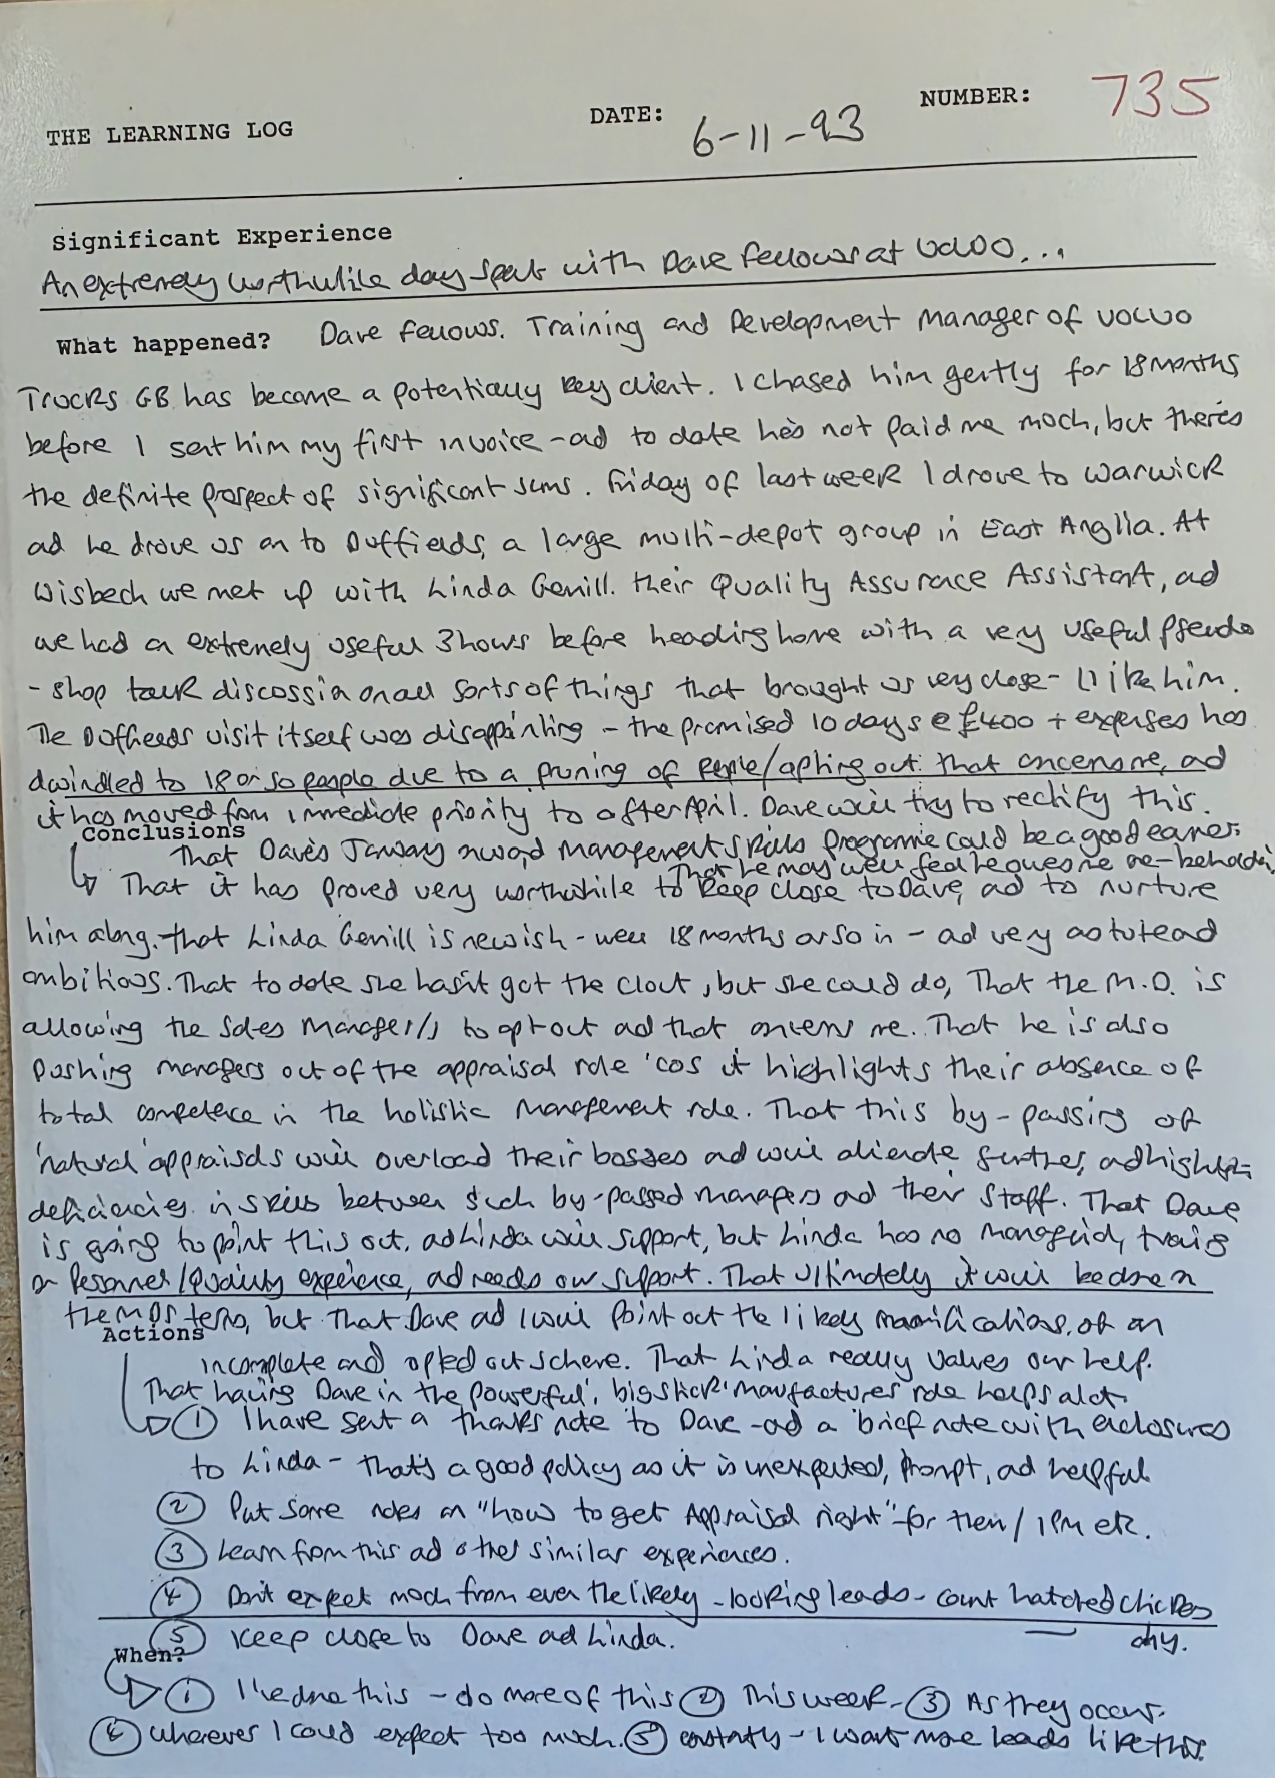 THE LEARNING LOG DATE: 6-11-93 NUMBER: 735
Significant Experience
An extremely worthwhile day spent with Dave Fellows at Volvo...
What happened? Dave Fellows. Training and Development Manager of Volvo
Trucks GB has become a potentially key client. I chased him gently for 18 months
before I sent him my first invoice - and to date he's not paid me much, but there's
the definite prospect of significant sums. Friday of last week I drove to Warwick
and he drove us on to Duffields, a large multi-depot group in East Anglia. At
Wisbech we met up with Linda Genill. their Quality Assurance Assistant, and
we had an extremely useful 3 hours before heading home with a very useful pseudo
- shop talk discussion on all sorts of things that brought us very close - I like him.
The Duffields visit itself was disappointing - the promised 10 days @ £400 + expenses has
dwindled to 18 or so people due to a pruning of people/opting out that concerns me, and
it has moved from immediate priority to after April. Dave will try to rectify this.
Conclusions
That Dave's management skills programme could be a good earner.
That he may well feel he owes me
That it has proved very worthwhile to keep close to Dave, and to nurture
him along. That Linda Genill is newish - well 18 months or so in - and very astute and
ambitious. That to date she hasn't got the clout, but she could do, That the M.D. is
allowing the Sales Manager/s to opt out and that concerns me. That he is also
pushing managers out of the appraisal role 'cos it highlights their absence of
total competence in the holistic management role. That this by-passing of
'natural' appraisals will overload their bosses and will alienate further, and highlight
deficiencies in skills between such by-passed managers and their staff. That Dave
is going to point this out, and Linda will support, but Linda has no managerial, training
or Personnel/Quality experience, and needs our support. That ultimately it will be done on
the MDs terms, but that Dave and I will point out the likely ramifications, of an
Actions
incomplete and opted out scheme. That Linda really values our help.
That having Dave in the powerful, 'big stick' manufacturers role helps a lot.
① I have sent a thanks note to Dave - and a brief note with enclosures
to Linda - that's a good policy as it is unexpected, prompt, and helpful
② Put some notes on "how to get Appraisal right" - for them / IPM etc.
③ Learn from this and other similar experiences.
④ Don't expect much from even the likely-looking leads - count hatched chickens
only.
⑤ Keep close to Dave and Linda.
When?
① I've done this - do more of this ② This week - ③ As they occur.
④ Wherever I could expect too much. ⑤ constantly - I want more leads like this.